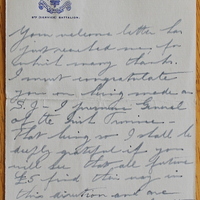 Your welcome letter has
just reached me, for
which many thanks.
I must congratulate
you on being made a
S.J. - I presume General
of the Irish Province -
That being so I shall be
deeply grateful if you
will see that all future
£5 find their way in
this direction and are